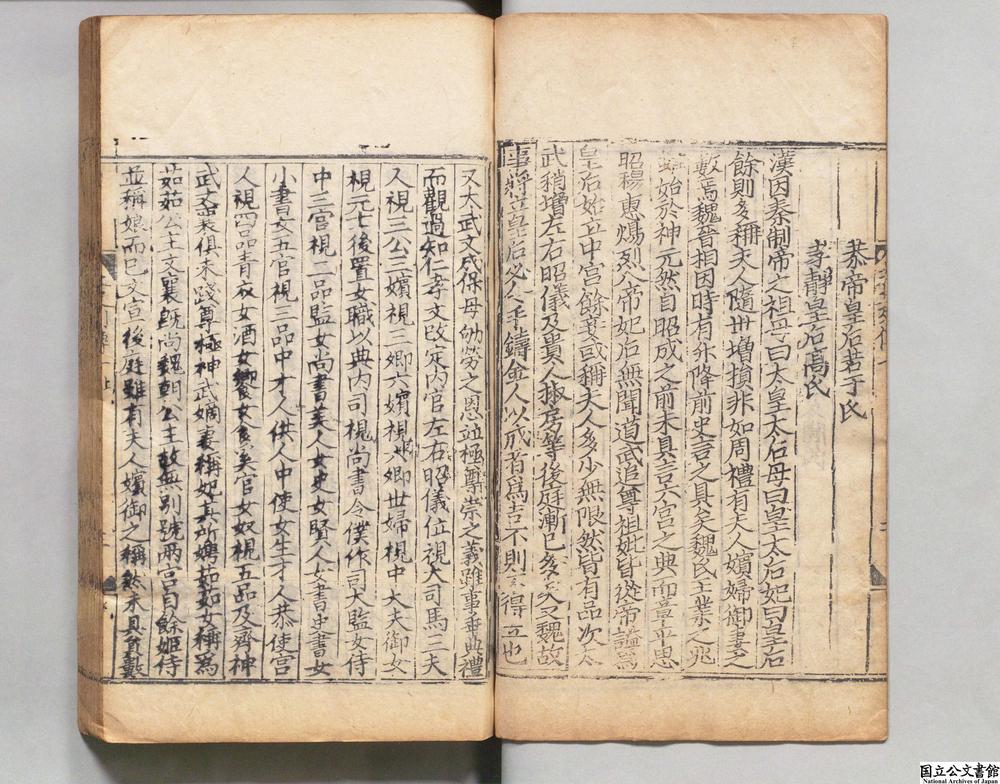 恭帝皇后若干氏
孝靜皇后高氏
漢因秦制帝之祖母曰太皇太后母曰皇太后妃曰皇后
餘則多稱夫人隨世增損非如周禮有夫人嬪婦御妻之
數焉魏晉相因時有升降前史言之具矣魏氏王業之兆
雖始於神元然自昭成之前未具言六宮之典而章平思
昭穆惠煬烈八帝妃后無聞道武追尊祖妣皆從帝諡爲
皇后始立中宮餘妾或稱夫人多少無限然皆有品次太
武稍增左右昭儀及貴人椒房等後庭漸已多矣又魏故
事將立皇后必令手鑄金人以成者爲吉不則不得立也
又太武文成保母劬勞之恩並極尊崇之義雖事乖典禮
而觀過知仁孝文改定內官左右昭儀位視大司馬三夫
人視三公三嬪視三卿六嬪視六卿世婦視中大夫御女
視元士後置女職以典內司視尚書令僕作司大監女侍
中三官視二品監女尚書美人女史女賢人女書史書女
小書女五官視三品中才人供人中使女生才人恭使宮
人視四品青衣女酒女饗女食奚官女奴視五品及齊神
武文襄俱未踐尊極神武嫡妻稱妃其所娉茹茹女稱爲
茹茹公主文襄既尚魏朝公主故無別號兩宮自餘姬侍
並稱娘而已文宣後庭雖有夫人嬪御之稱然未具員數
国立公文書館
National Archives of Japan